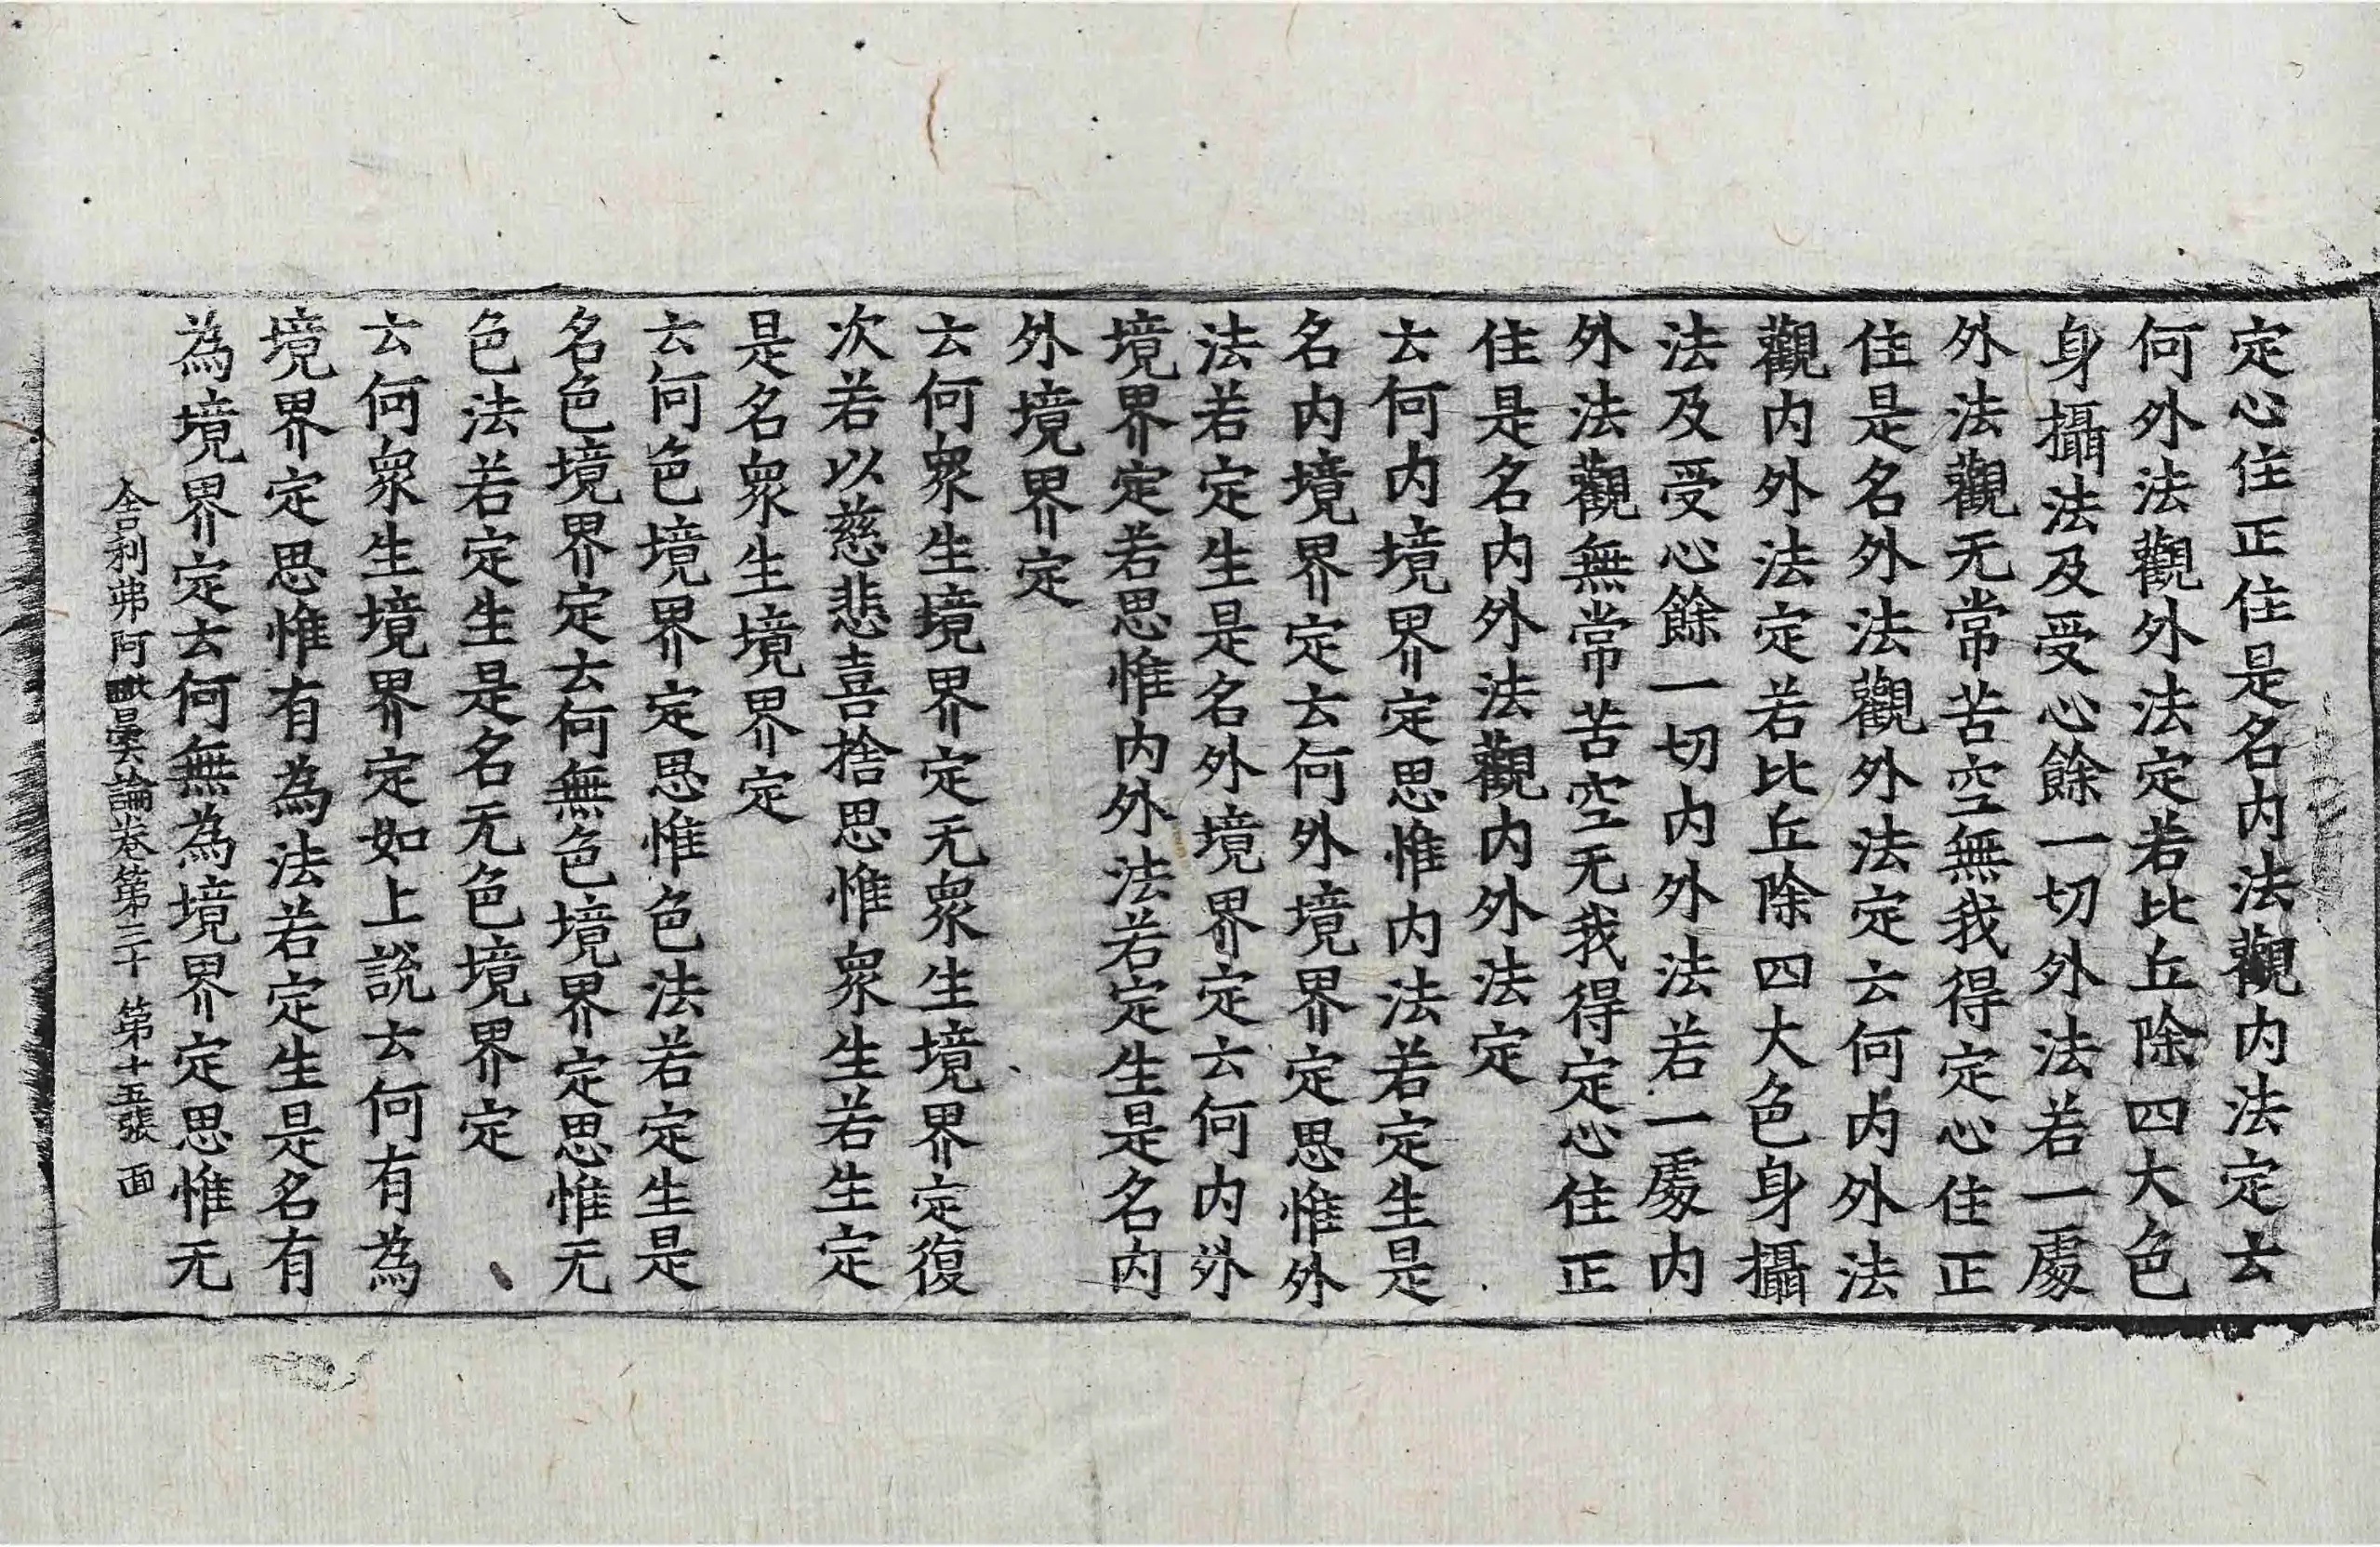 定心住正住是名内法觀内法定云
何外法觀外法定若比丘除四大色
身攝法及受心餘一切外法若一處
外法觀无常苦空無我得定心住正
住是名外法觀外法定云何内外法
觀内外法定若比丘除四大色身攝
法及受心餘一切内外法若一處内
外法觀無常苦空无我得定心住正
住是名内外法觀内外法定
云何内境界定思惟内法若定生是
名内境界定云何外境界定思惟外
法若定生是名外境界定云何内外
境界定若思惟内外法若定生是名内
外境界定
云何衆生境界定无衆生境界定復
次若以慈悲喜捨思惟衆生若生定
是名衆生境界定
云何色境界定思惟色法若定生是
名色境界定云何無色境界定思惟无
色法若定生是名无色境界定
云何衆生境界定如上說云何有為
境界定思惟有為法若定生是名有
為境界定云何無為境界定思惟无
舍利弗阿毗曇論卷第三十 第十五張 面